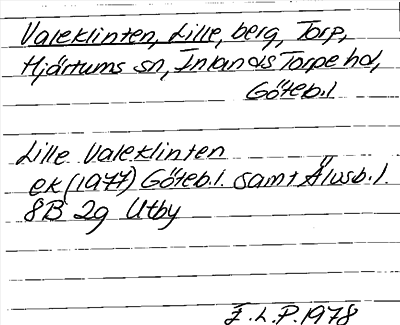 Valeklinten, Lille, berg, Torp,
Hjärtums sn, Inlands Torpe hd,
Göteb.l
Lille Valeklinten
ek (1977) Göteb.l. samt Älvsb.l.
8B 2g Utby
E.L.P. 1978